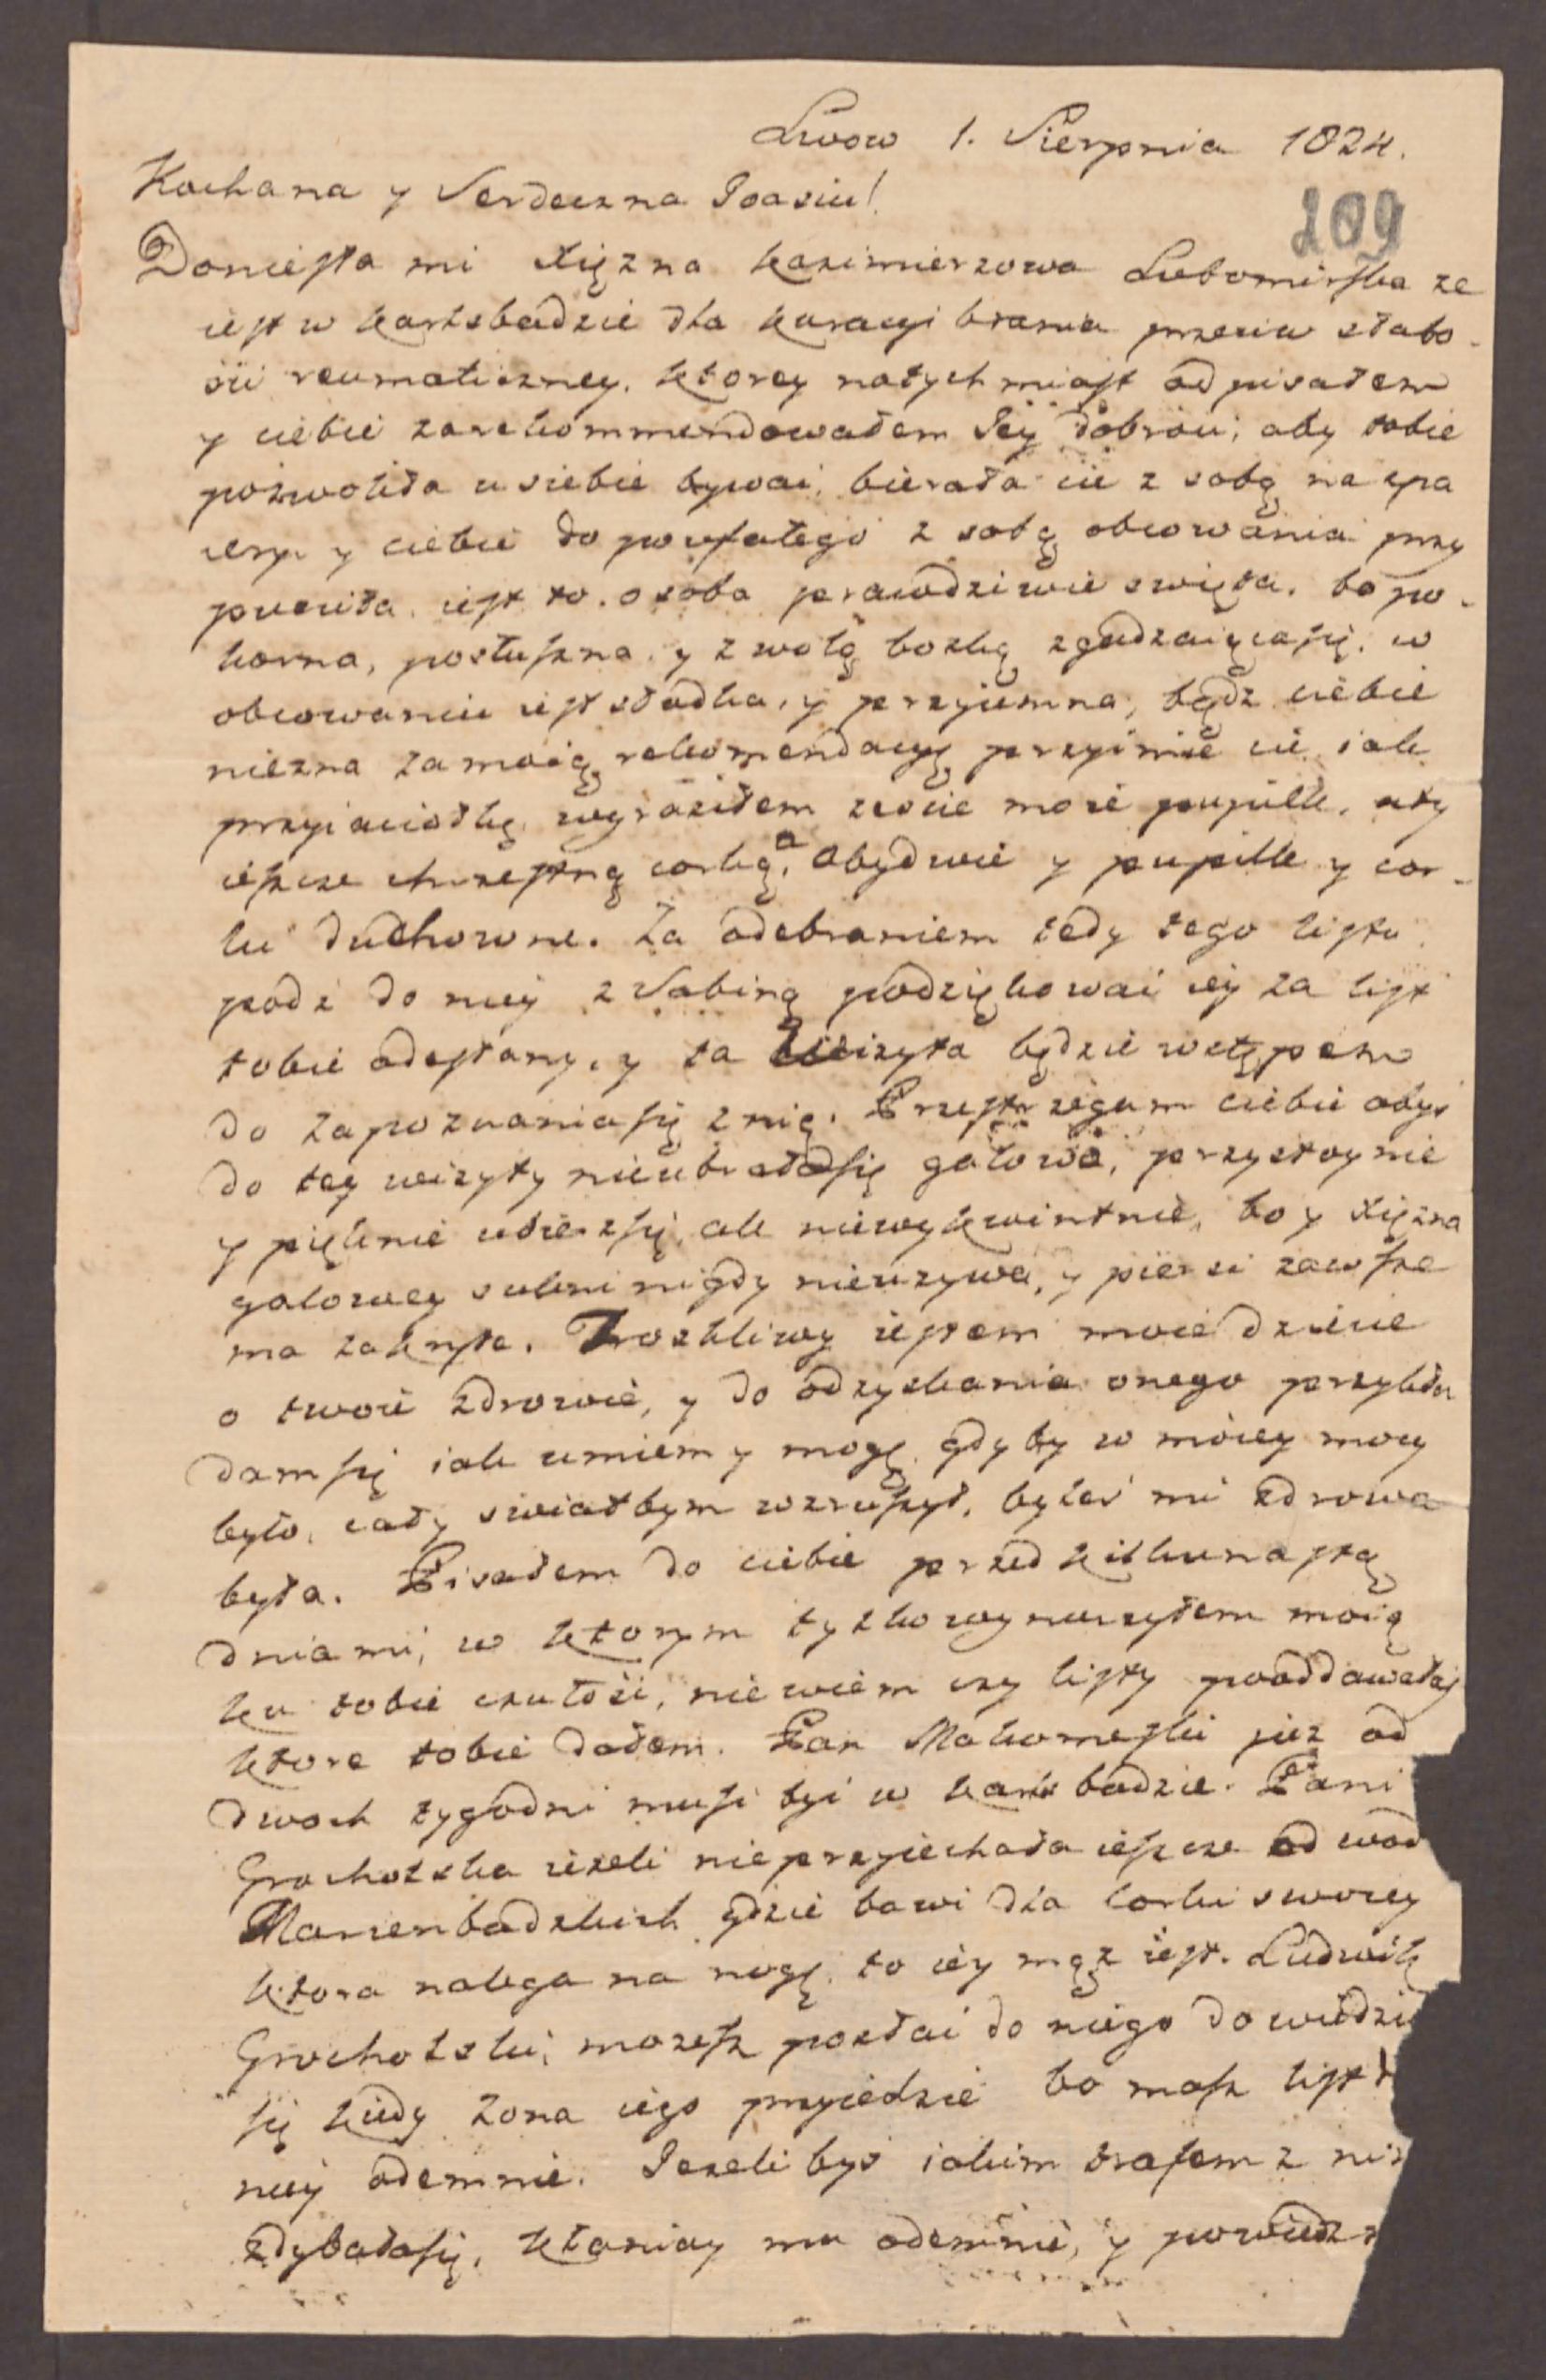 Lwow 1. Sierpnia 1824.
209
Kochana y Serdeczna Joasiu!
Doniesła mi Xiężna Kazimierzowa Lubomirska ze
iest w Karlsbadzie dla kuracyi brania przeciw słabo-
sci reumaticzney. ktorey natychmiast odpisałem
y ciebie zarekommendowałem Jey dobroci, aby tobie
pozwoliła u siebie bywać, bierała cie z sobą na spa
cery y ciebie do poufałego z sobą obcowania przy
puscila. iest to osoba prawdziwie swięta. bo po-
korna, posłuszna, y z wolą boską zgadzaiącasię. w
obcowaniu iest słodka, y przyiemna, będz ciebie
niezna za moią rekomendacyą przyimie cie iak
przyiaciołkę wyraziłem zescie moie pupilk. aty
ieszcze chrzestną corką, a obydwie y pupilk y cor-
ki duchowne. Za odebraniem tedy tego listu
podz do niey z Sabiną podziękować iey za list
tobie odesłany, y ta wizyta będzie wstępem
do zapoznaniasię z nią. Przestrzegam ciebie abys
do tey wizyty nieubrałasię galowo, przystoynie
y pięknie ubierzsię, ale niewykwintnie, bo y Xiężna
galowey sukni nigdy nieuzywa, y piersi zawsze
ma zakryte. Troskliwy iestem moie dziecie
o twoie zdrowie, y do odzyskania onego przykła
damsię iak umiem y mogę. gdyby w moiey mocy
było, cały swiatbym wzruszył, byles mi zdrowa
była. Pisałem do ciebie przed kilkunastą
dniami, w ktorym tylko wynurzyłem moią
ku tobie czułosć, nie wiem czy listy pooddawałas
ktore tobie dałem. Pan Makomeski juz od
dwoch tygodni musi byc w Karlsbadzie. Pani
Grocholska iezeli nieprzyiechała ieszcze od wod
Marienbadzkich gdzie bawi dla corki swoiey
ktora nalega na nogę, to iey mąz iest. Ludwik
Grocholski, mozesz posłać do niego dowiedzie
się kiedy zona iego przyiedzie bo masz list d
niey odemnie. Jezelibys iakim trafem z nim
zdybałasię, kłaniay mu odemnie, y powiedz